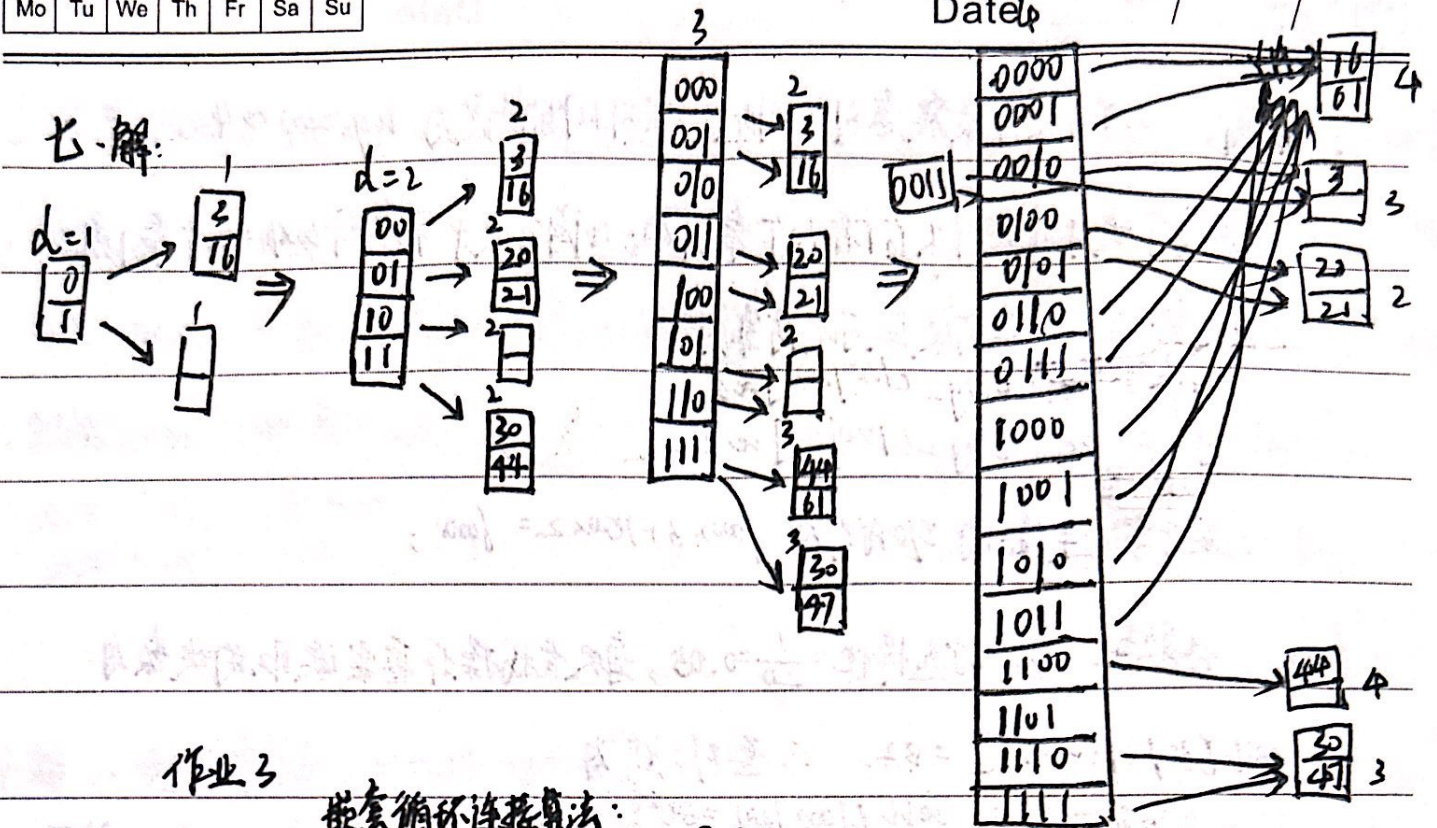 Mo Tu We Th Fr Sa Su
Date
七、解:
d=1
0
1
1
3
16
1
⇒
d=2
00
01
10
11
2
3
16
2
20
21
2
2
30
44
⇒
3
000
001
010
011
100
101
110
111
2
3
16
20
21
2
3
44
61
3
30
47
⇒
4
0000
0001
0010
0011
0100
0101
0110
0111
1000
1001
1010
1011
1100
1101
1110
1111
16
61
4
3
3
20
21
2
44
4
30
47
3
作业3
嵌套循环连接算法: